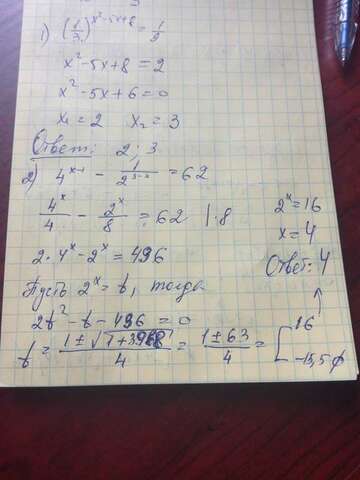 1) (1/3)^(x²-5x+8) = 1/9
x²-5x+8 = 2
x²-5x+6 = 0
x₁ = 2 x₂ = 3
Ответ: 2; 3
2) 4^(x-1) - 1/2^(3-x) = 62
4^x/4 - 2^x/8 = 62 |·8
2·4^x - 2^x = 496
Пусть 2^x = t, тогда
2t² - t - 496 = 0
t = (1 ± √(1+3968))/4 = (1 ± 63)/4 = [16
-15,5 ∅
2^x = 16
x = 4
Ответ: 4